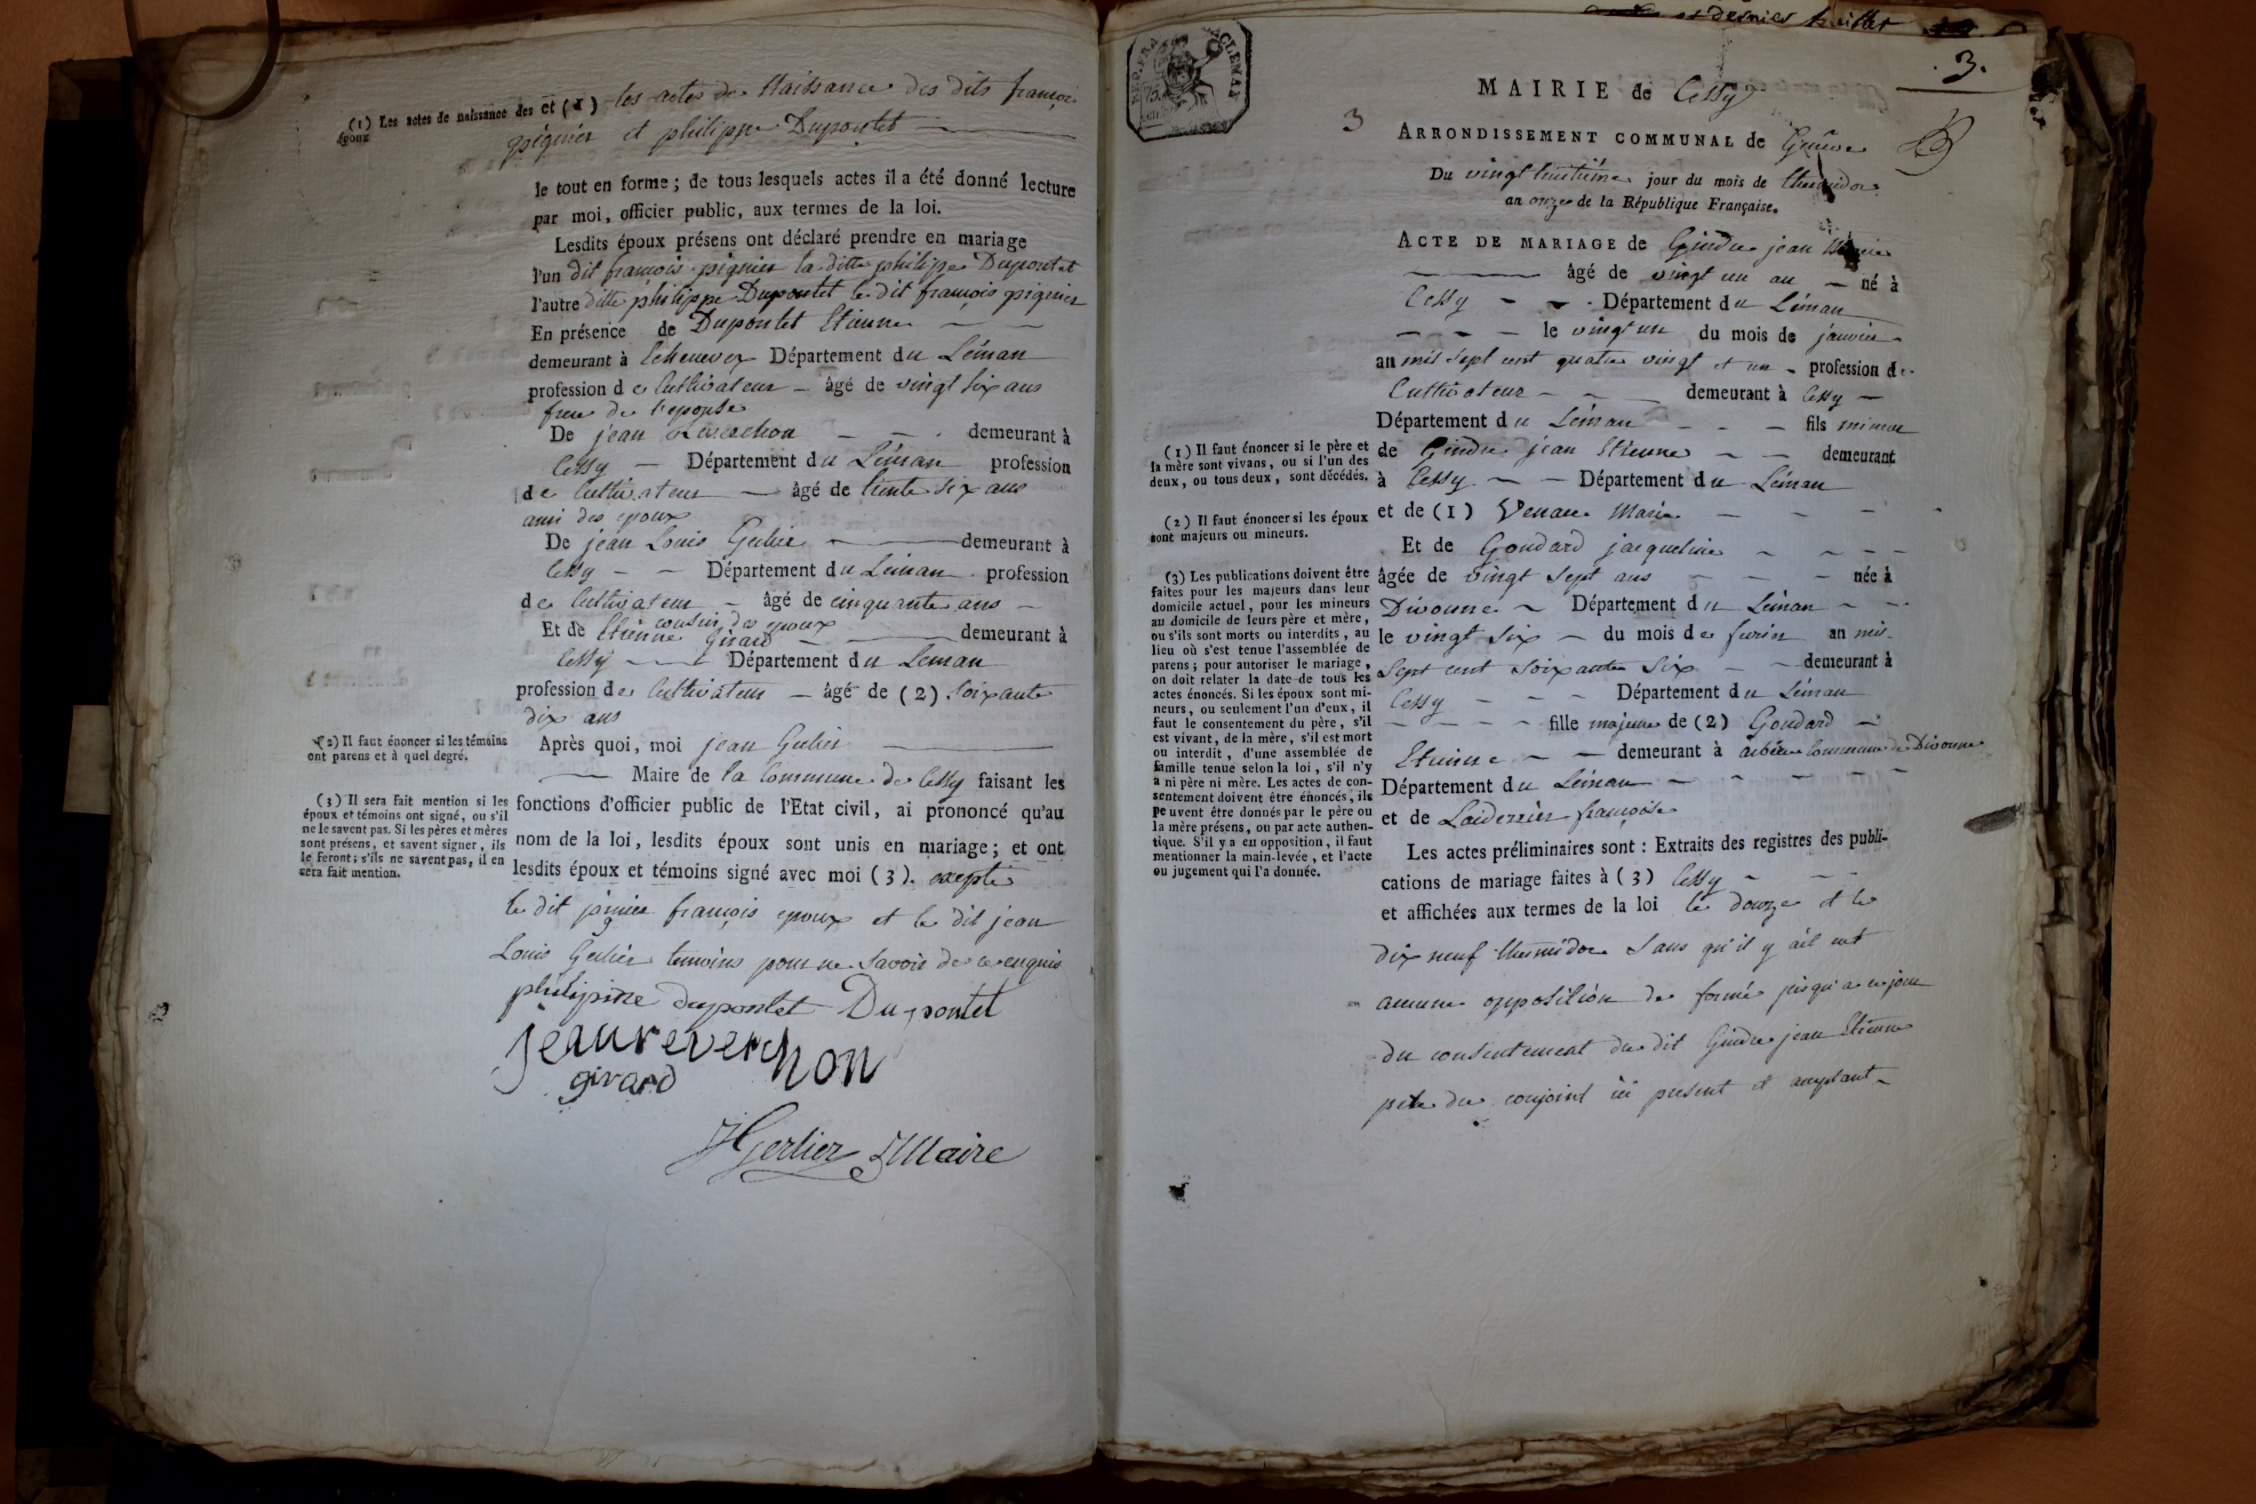 (1) Les actes de naissance des
époux
et (1) les actes de Naissance des dits françois
pignier et philippe Dupontet
le tout en forme ; de tous lesquels actes il a été donné lecture
par moi, officier public, aux termes de la loi.
Lesdits époux présens ont déclaré prendre en mariage
l'un dit françois pignier la ditte philippe Dupontet
l'autre ditte philippe Dupontet le dit françois pignier
En présence de Dupontet Etienne
demeurant à Echenevex Département du Léman
profession de Cultivateur âgé de vingt six ans
frere de l'epouse
De jean Reverchon demeurant à
Cessy Département du Léman profession
de Cultivateur âgé de trente six ans
ami des epoux
De jean Louis Gerlier demeurant à
Cessy Département du Léman profession
de Cultivateur âgé de cinquante ans
cousin des epoux
Et de Etienne Girard demeurant à
Cessy Département du Leman
profession de Cultivateur âgé de (2) soixante
dix ans
(2) Il faut énoncer si les témoins
ont parens et à quel degré.
Après quoi, moi jean Gerlier
Maire de la Commune de Cessy faisant les
fonctions d'officier public de l'Etat civil, ai prononcé qu'au
nom de la loi, lesdits époux sont unis en mariage ; et ont
lesdits époux et témoins signé avec moi (3). excepté
(3) Il sera fait mention si les
époux et témoins ont signé, ou s'il
ne le savent pas. Si les pères et mères
sont présens, et savent signer, ils
le feront ; s'ils ne savent pas, il en
sera fait mention.
le dit pignier françois epoux et le dit jean
Louis Gerlier temoins pour ne savoir de ce enquis
philipine dupontet Dupontet
jean reverchon
girard
JGerlier Maire
et dernier feuillet
3.
3
MAIRIE de Cessy
ARRONDISSEMENT COMMUNAL de Genève
Du vingt huitième jour du mois de thermidor
an onze de la République Française.
ACTE DE MARIAGE de Gindre jean Marie
âgé de vingt un an né à
Cessy Département du Léman
le vingt un du mois de janvier
an mil sept cent quatre vingt et un profession de
Cultivateur demeurant à Cessy
Département du Léman fils mineur
de Gindre jean Etienne demeurant
à Cessy Département du Léman
et de (1) Marie
Et de Goudard jacqueline
âgée de vingt sept ans née à
Divonne Département du Léman
le vingt six du mois de an mil
sept cent soixante six demeurant à
Cessy Département du Léman
fille majeure de (2) Goudard
Etienne demeurant à arbère Commune de Divonne
Département du Léman
et de françoise
(1) Il faut énoncer si le père et
la mère sont vivans, ou si l'un des
deux, ou tous deux, sont décédés.
(2) Il faut énoncer si les époux
sont majeurs ou mineurs.
(3) Les publications doivent être
faites pour les majeurs dans leur
domicile actuel, pour les mineurs
au domicile de leurs père et mère,
ou s'ils sont morts ou interdits, au
lieu où s'est tenue l'assemblée de
parens ; pour autoriser le mariage,
on doit relater la date de tous les
actes énoncés. Si les époux sont mi-
neurs, ou seulement l'un d'eux, il
faut le consentement du père, s'il
est vivant, de la mère, s'il est mort
ou interdit, d'une assemblée de
famille tenue selon la loi, s'il n'y
a ni père ni mère. Les actes de con-
sentement doivent être énoncés, ils
peuvent être donnés par le père ou
la mère présens, ou par acte authen-
tique. S'il y a eu opposition, il faut
mentionner la main-levée, et l'acte
ou jugement qui l'a donnée.
Les actes préliminaires sont : Extraits des registres des publi-
cations de mariage faites à (3) Cessy
et affichées aux termes de la loi le douze et le
dix neuf thermidor sans qu'il y ait eut
aucune opposition de formé jusqu'a ce jour
du consentement du dit Gindre jean Etienne
père du conjoint ici present et acceptant